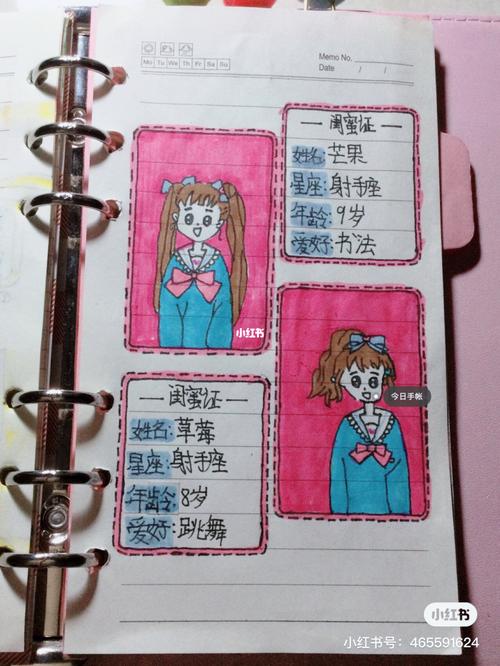 Memo No.
Mo Tu We Th Fr Sa Su
Date / /
— 闺蜜证 —
姓名: 芒果
星座: 射手座
年龄: 9岁
爱好: 书法
小红书
今日手帐
— 闺蜜证 —
姓名: 草莓
星座: 射手座
年龄: 8岁
爱好: 跳舞
小红书
小红书号: 465591624